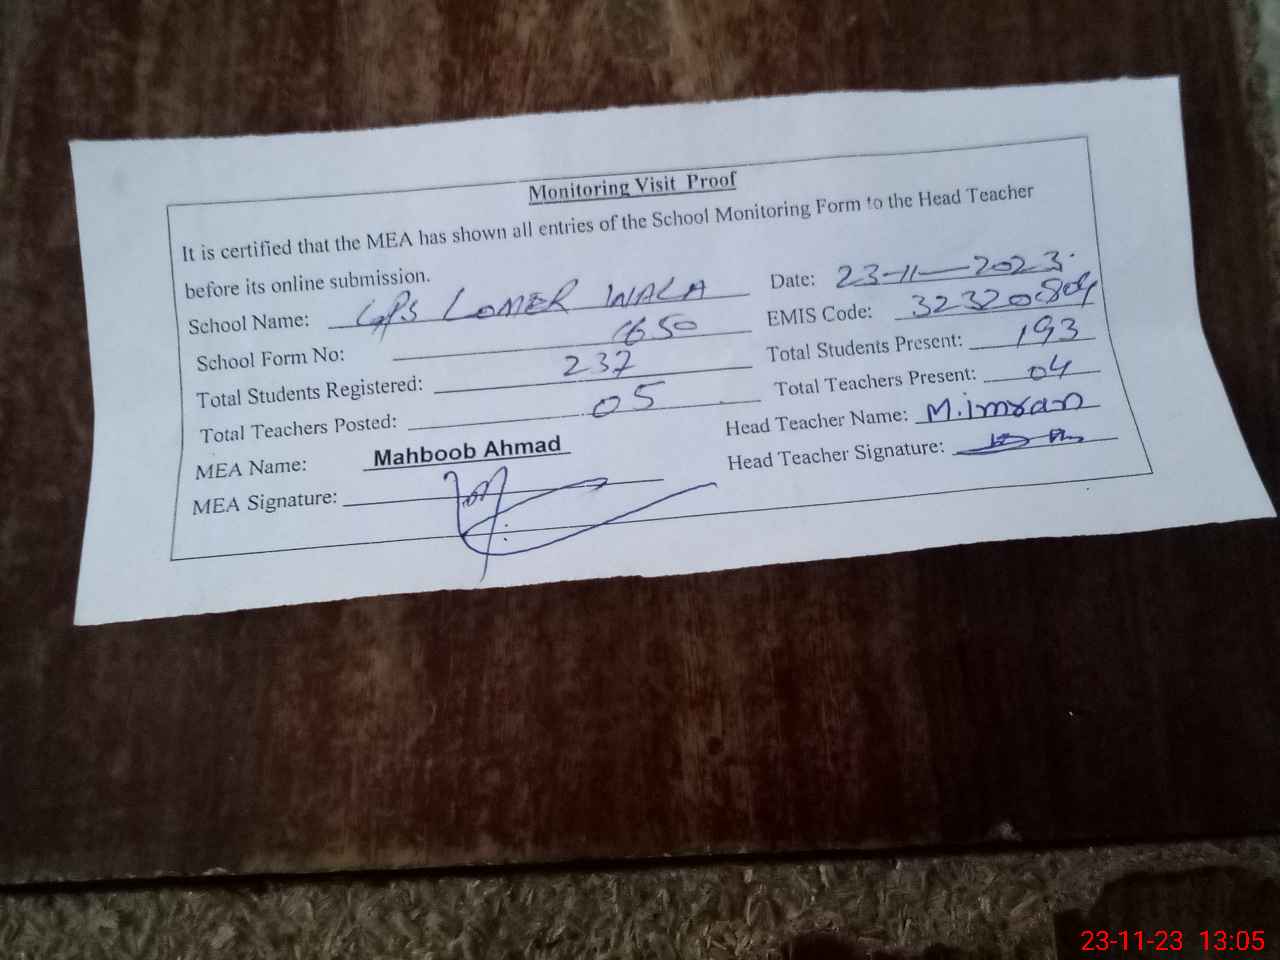 Monitoring Visit Proof
It is certified that the MEA has shown all entries of the School Monitoring Form to the Head Teacher
before its online submission.
Date: 23-11-2023.
School Name: GPS LOMER WALA
EMIS Code: 32320804
School Form No: 1650
Total Students Present: 193
Total Students Registered: 237
Total Teachers Present: 04
Total Teachers Posted: 05
Head Teacher Name: M.imran
MEA Name: Mahboob Ahmad
Head Teacher Signature:
MEA Signature:
23-11-23 13:05